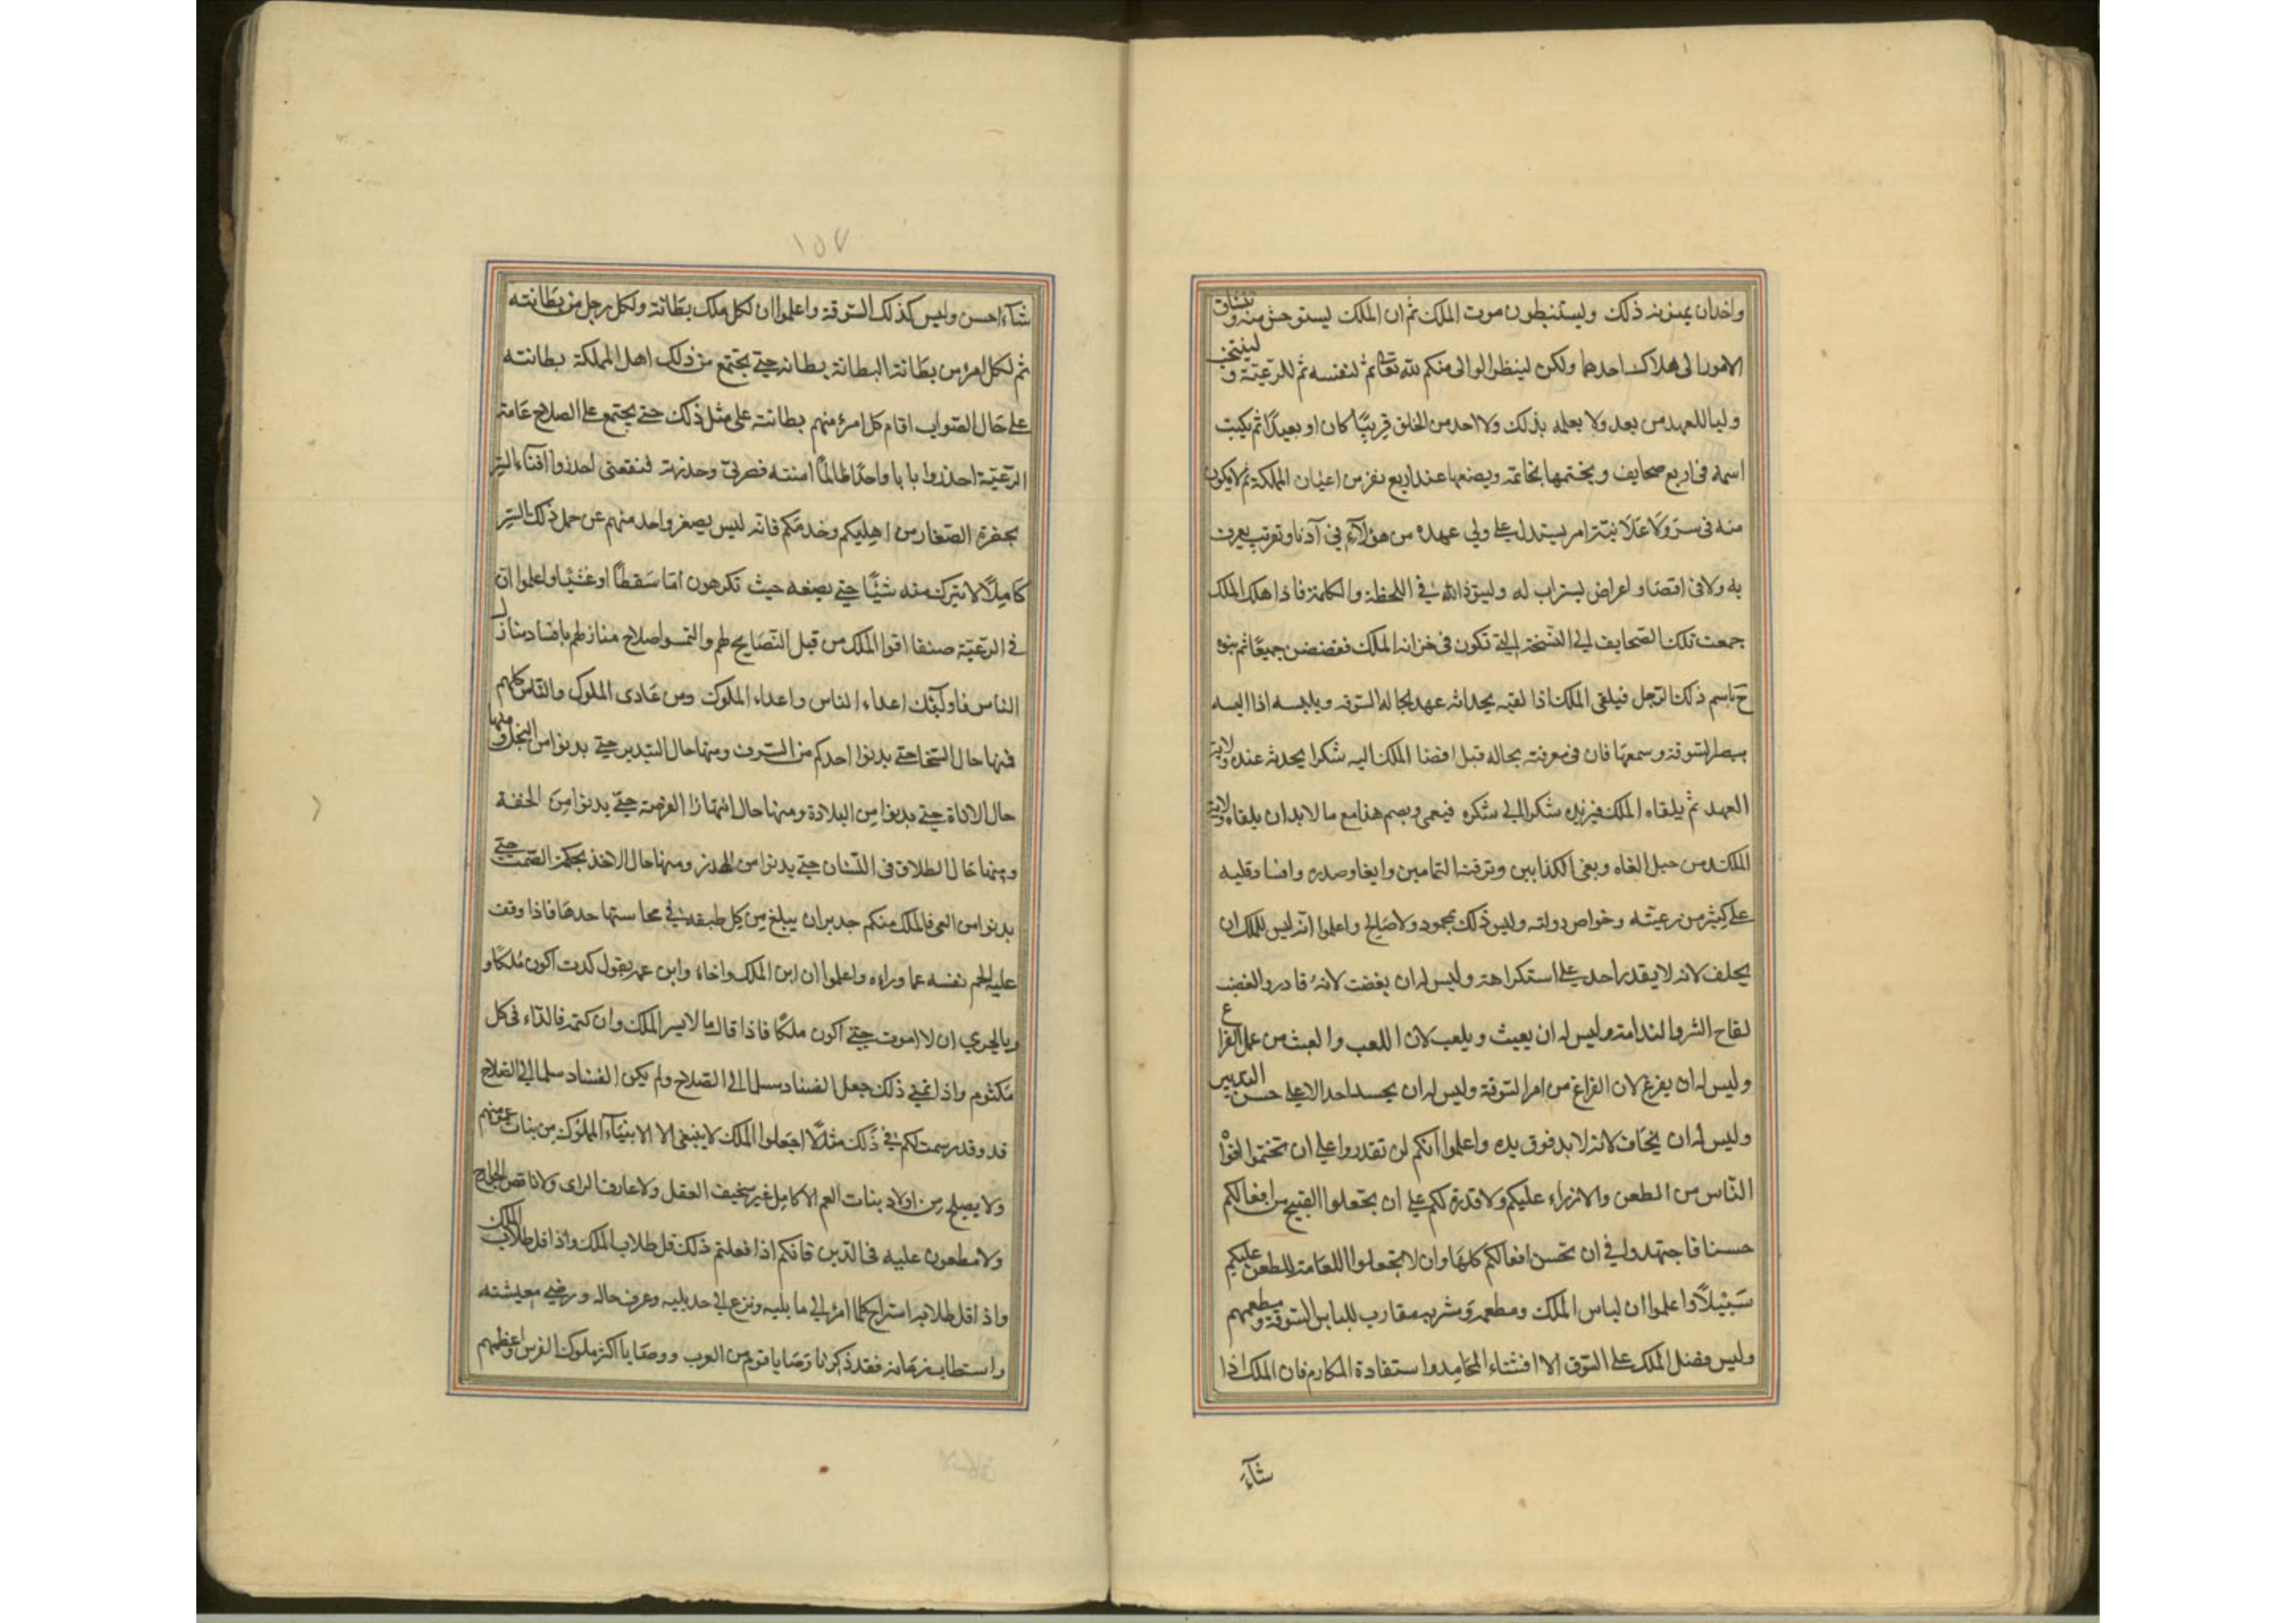 واخدان يمنونه ذلك ويستنبطون موت الملك ثم ان الملك ليستوحش منه و تنساق
الامور الى هلاك احدهما ولكن لينظر الوالى منكم لله تعالى ثم لنفسه ثم للرعيتة و لينتخب
وليا للعهد من بعد ولا يعلمه بذلك ولا احد من الخلق قريبًا كان او بعيدًا ثم يكتب
اسمه فى اربع صحايف ويختمها بخاتمه ويضعها عند اربع نفر من اعيان المملكة ثم لا يكون
منه فى سر ولا علانيتة امر يستدل على ولي عهده من هؤلاء في آدنا وتقرتب يعرف
به ولا فى اقصا و اعراض يستراب له وليتق ذالله في اللحظة والكلمة فاذا هلك الملك
جمعت تلك الصحايف الى النسخة التى تكون فى خزانة الملك فتفضض جميعًا ثم ينوه
ح باسم ذلك الرجل فيلقى الملك اذا لقيه بحداثه عهد بحاله السوقه ويلبسه اذا البسه
ببصر السوقة وسمعها فان فى معرفته بحاله قبل افضا الملك اليه شكرا يحدثه عنده ولاية
العهد ثم يلقاه الملك فيزيده شكرا الى شكره فيعمى ويصم هذا مع ما لا بد ان يلقاه ولاية
الملك من حيل الغاه وبغى الكذابين وترقية النمامين وايغا وصدره وافسا وقلبه
على كثير من رعيتته وخواص دولته وليس ذلك بمحمود ولا صالح واعلموا انه ليس للملك ان
يحلف لانه لا يقدر احد على استكراهة وليس له ان يغضب لانه قادر والغضب
لقاح الشر والندامة وليس له ان يعيث ويلعب لان اللعب والعبث من عمل الفراع
وليس له ان يفرغ لان الفراغ من امر السوقة وليس له ان يحسد احدا الا على حسن التدبير
وليس له ان يخاف لانه لا بد فوق يده واعلموا انكم لن تقدروا على ان تختموا افوا
الناس من الطعن والازراء عليكم ولا قدرة لكم على ان تجعلوا القبيح من افعالكم
حسنا فاجتهدوا في ان تحسن افعالكم كلها وان لا تجعلوا اللعامة للطعن عليكم
سبيلاً واعلموا ان لباس الملك ومطعمه ومشربه مقارب للباس السوقة و مطعمهم
وليس فضل الملك على السوق الا افتناء المحامد واستفادة المكارم فان الملك اذا
شآء
١٥٧
شآء احسن وليس كذلك السوقة واعلموا ان لكل ملك بطانة ولكل رجل من بطانته
ثم لكل امرء من بطانة البطانة بطانه حتى يجتمع من ذلك اهل المملكة بطانته
على حال الصواب اقام كل امرء منهم بطانته على مثل ذلك حتى يجتمع على الصلاح عامة
الرعيتة احذروا بابا واحدًا طالمًا امنته فضرني وحذرته فنفعنى احذروا افشاء السر
بحضرة الصغار من اهليكم وخدمكم فانه ليس يصغر واحد منهم عن حمل ذلك السر
كاملاً لا يترك منه شيئًا حتى يضعه حيث تكرهون اما سقطًا او غشيًا واعلموا ان
في الرعيتة صنفا اتوا الملك من قبل النصايح لهم والتمسوا صلاح منازلهم بافساد منازل
الناس فاولئك اعداء الناس واعداء الملوك ومن عادى الملوك والناس كلهم
فمنها حال السخا حتى يدنوا احدكم من السرف ومنها حال التبدير حتى يدنوا من البخل و منها
حال الاناة حتى يدنوا من البلادة ومنها حال انتهازا الفرصة حتى يدنوا من الخفة
ومنها حال الطلاق فى اللسان حتى يدنوا من الهذر ومنها حال الاخذ بحكمة الصمت حتى
يدنوا من العى فالملك منكم جدير ان يبلغ من كل طبقه في محاسنها حدها فاذا وقف
عليه الجم نفسه عما وراءه واعلموا ان ابن الملك واخاه وابن عمه يقول كدت اكون ملكًا و
وبالحري ان لا اموت حتى اكون ملكًا فاذا قال ما لا يسر الملك وان كتمه فالداء فى كل
مكتوم واذا تمنى ذلك جعل الفساد سلما الى الصلاح ولم يكن الفساد سلما الى الصلاح
قد وقد رسمت لكم في ذلك مثلاً اجعلوا الملك لا ينبغى الا لابنيآء الملوك من بنات عمهم
ولا يصلح من اولاد بنات العم الا كامل غير سخيف العقل ولا عازف الراى ولا ناقص الجوارح
ولا مطعون عليه فى الدين فانكم اذا فعلتم ذلك قل طلاب الملك واذا قل طلاب الملك
واذ اقل طلابه استراح كلما امرء الى ما يليه ونزع الى حد يليه وعرف حاله ورضي معيشته
واستطاب زمانه فقد ذكرنا وصايا قوم من العرب ووصايا اكثر ملوك الفرس واعظهم